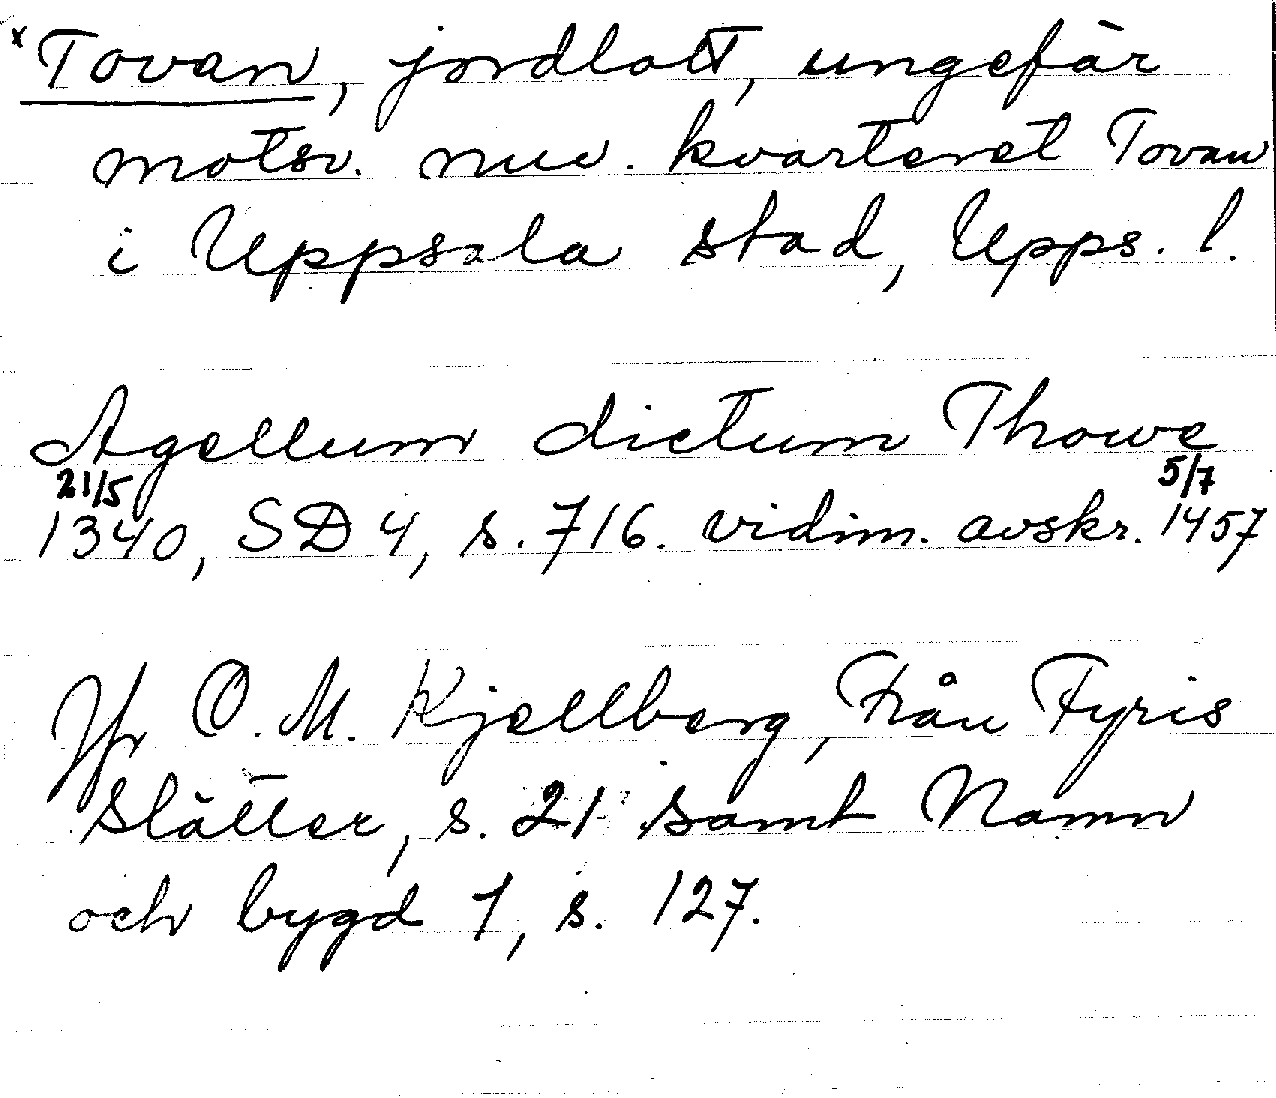 x Tovan, jordlott, ungefär
motsv. nuv. kvarteret Tovan
i Uppsala stad, Upps. l.
Agellum dictum Thowe
21/5 5/7
1340, SD 4, s. 716. vidim. avskr. 1457
Jfr O. M. Kjellberg, Från Fyris
slätter, s. 21 samt Namn
och bygd 1, s. 127.